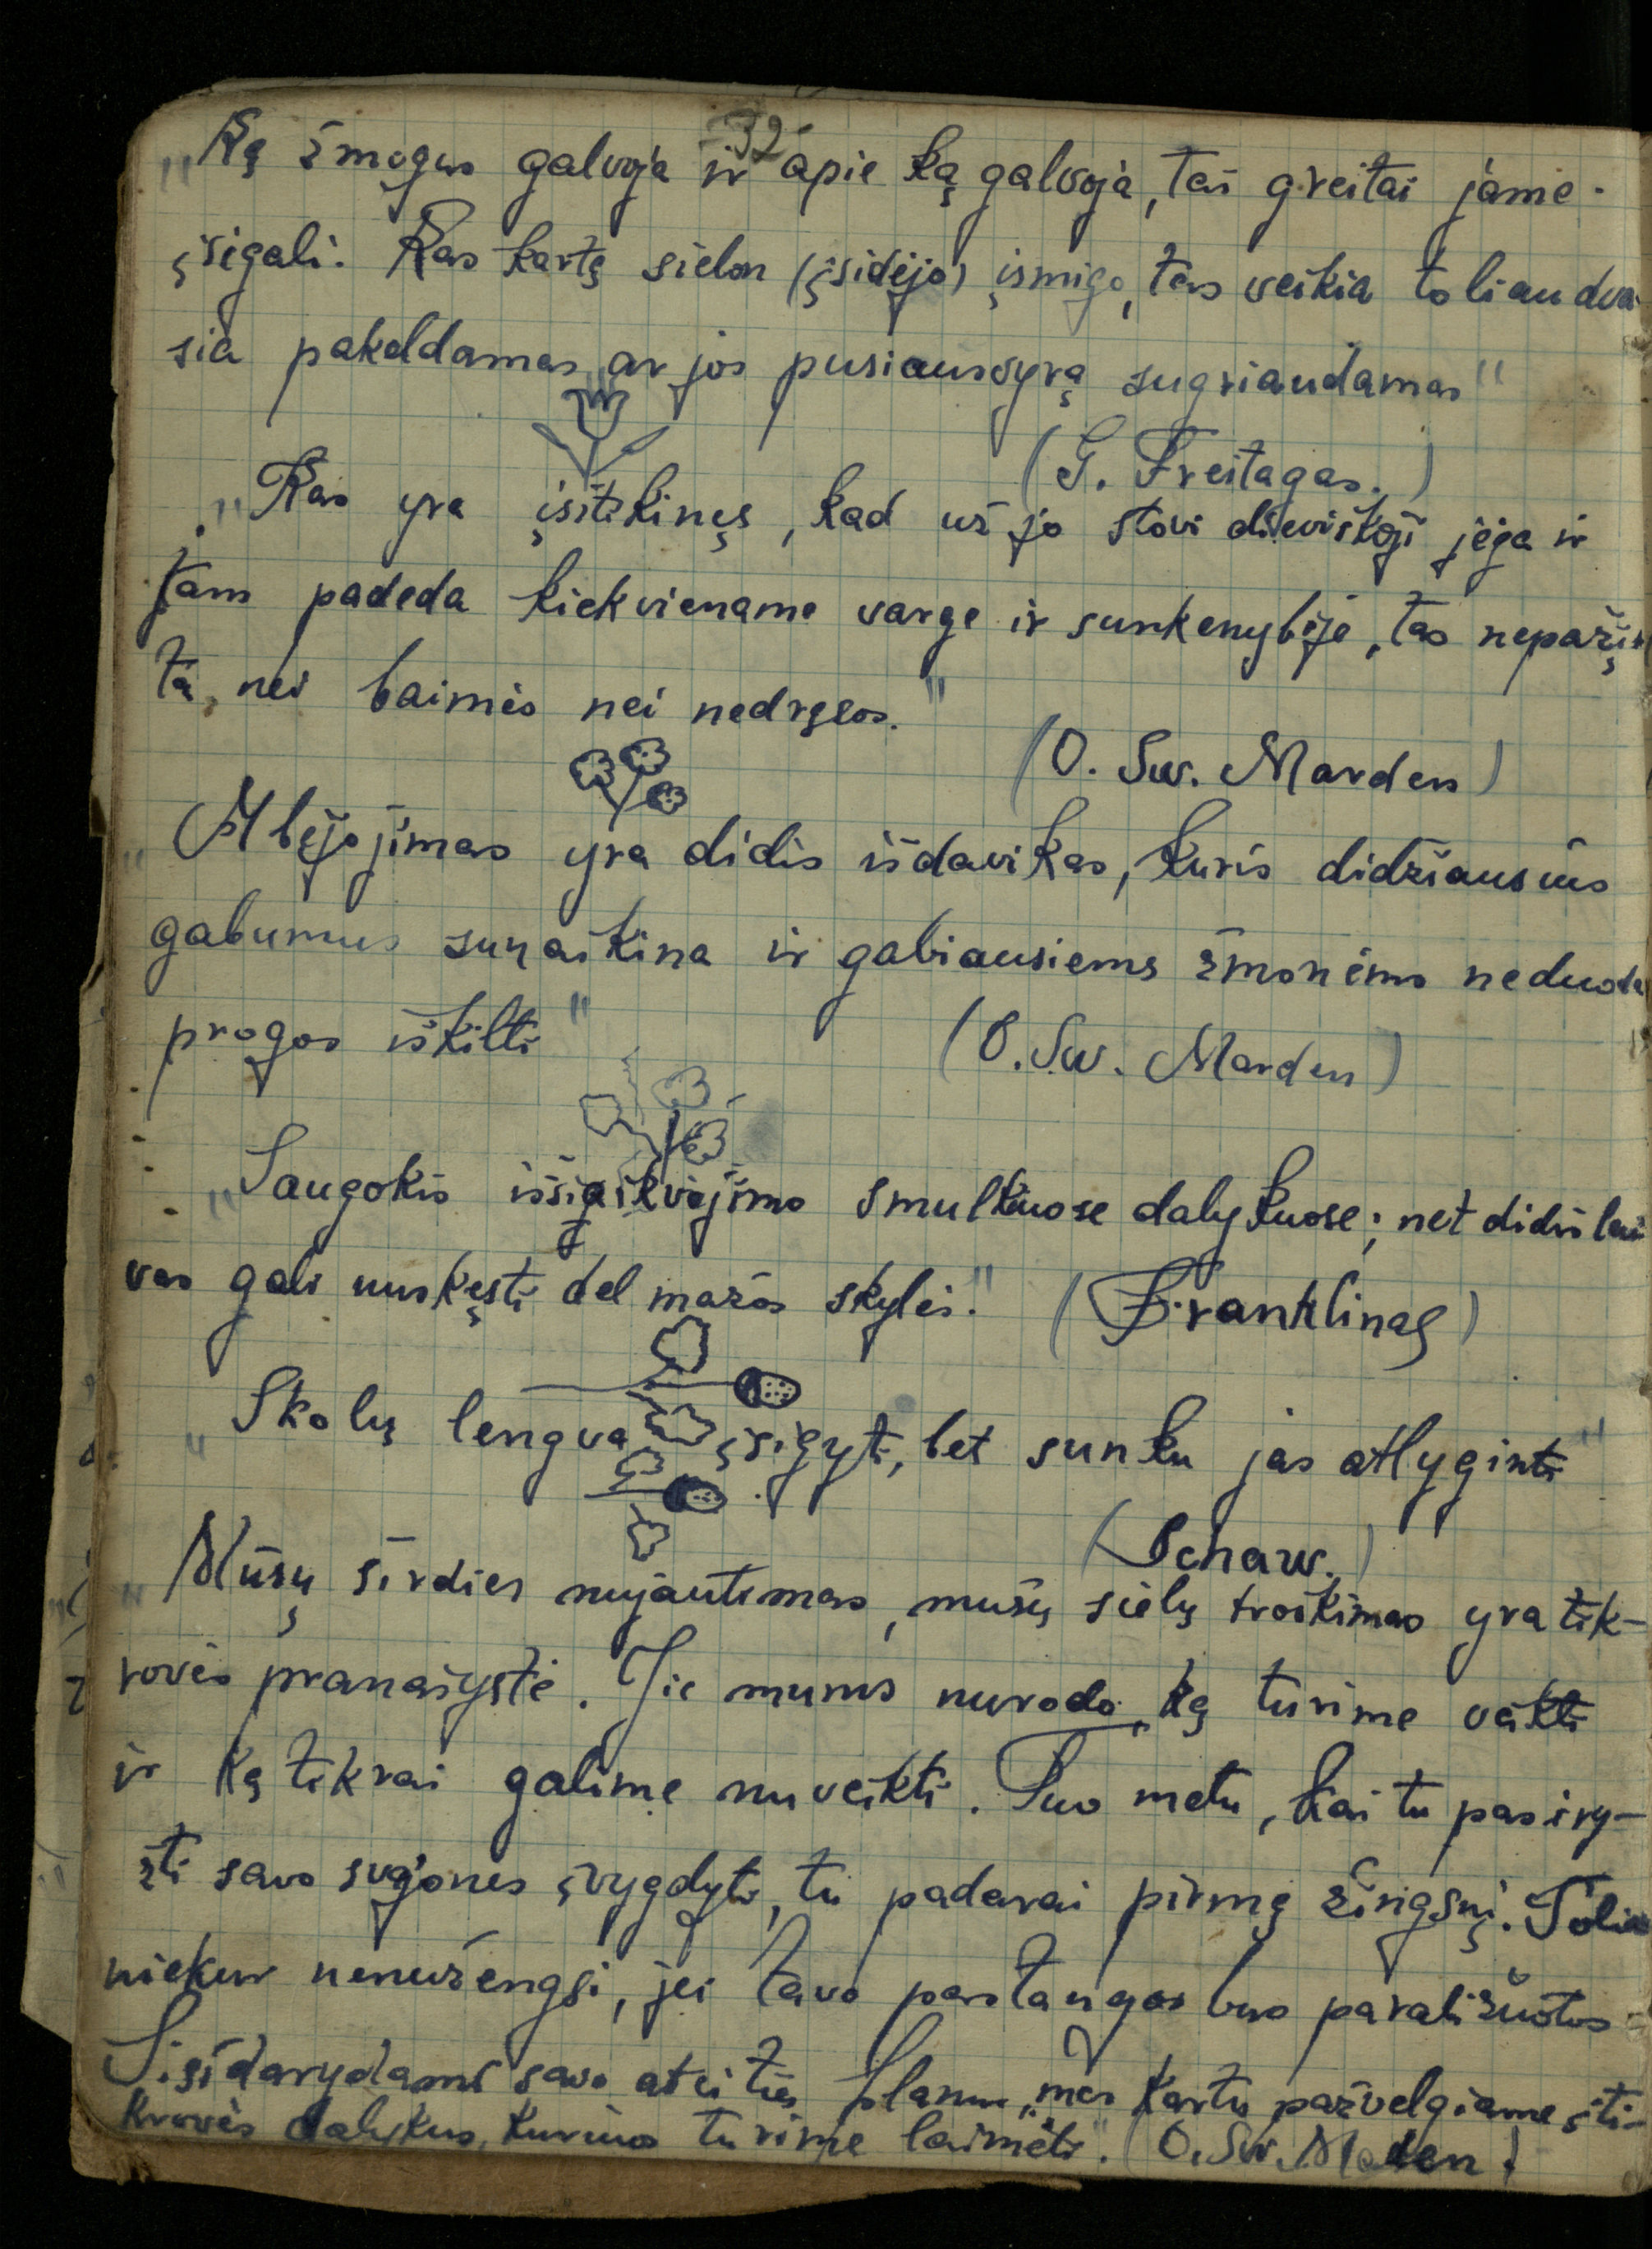 32
"Ką žmogus galvoja ir apie ką galvoja, tai greitai jame
įsigali. Kas kartą sielon (įsidėjo) įsmigo, tas veikia toliau dva-
sia pakeldamas ar jos pusiausvyrą sugriaudamas"
(G. Freitagas.)
"Kas yra įsitikinęs, kad už jo stovi dieviškoji jėga ir
jam padeda kiekviename varge ir sunkenybėje, tas nepažįs
ta nei baimės nei nedrąsos."
(O. Sw. Marden)
"Abejojimas yra didis išdavikas, kuris didžiausius
gabumus sunaikina ir gabiausiems žmonėms neduoda
progos iškilti"
(O. Sw. Marden)
"Saugokis išsieikvojimo smulkiuose dalykuose; net didis lai
vas gali nuskęsti del mažos skylės." (Franklinas)
"Skolų lengva įsigyti, bet sunku jas atlyginti"
(Schaw.)
"Mūsų širdies nujautimas, mūsų sielų troškimas yra tik-
rovės pranašystė. Jie mums nurodo, ką turime veikti
ir ką tikrai galime nuveikti. Tuo metu, kai tu pasiry-
žti savo svajones įvygdyti, tu padarai pirmą žingsnį. Toliau
niekur nenužengsi, jei tavo pastangos bus paraližuotos
Sisidarydami savo ateities planus, mes kartu pažvelgiame į ti-
krovės dalykus, kuriuos turime laimėti". (O. Sw. Marden)